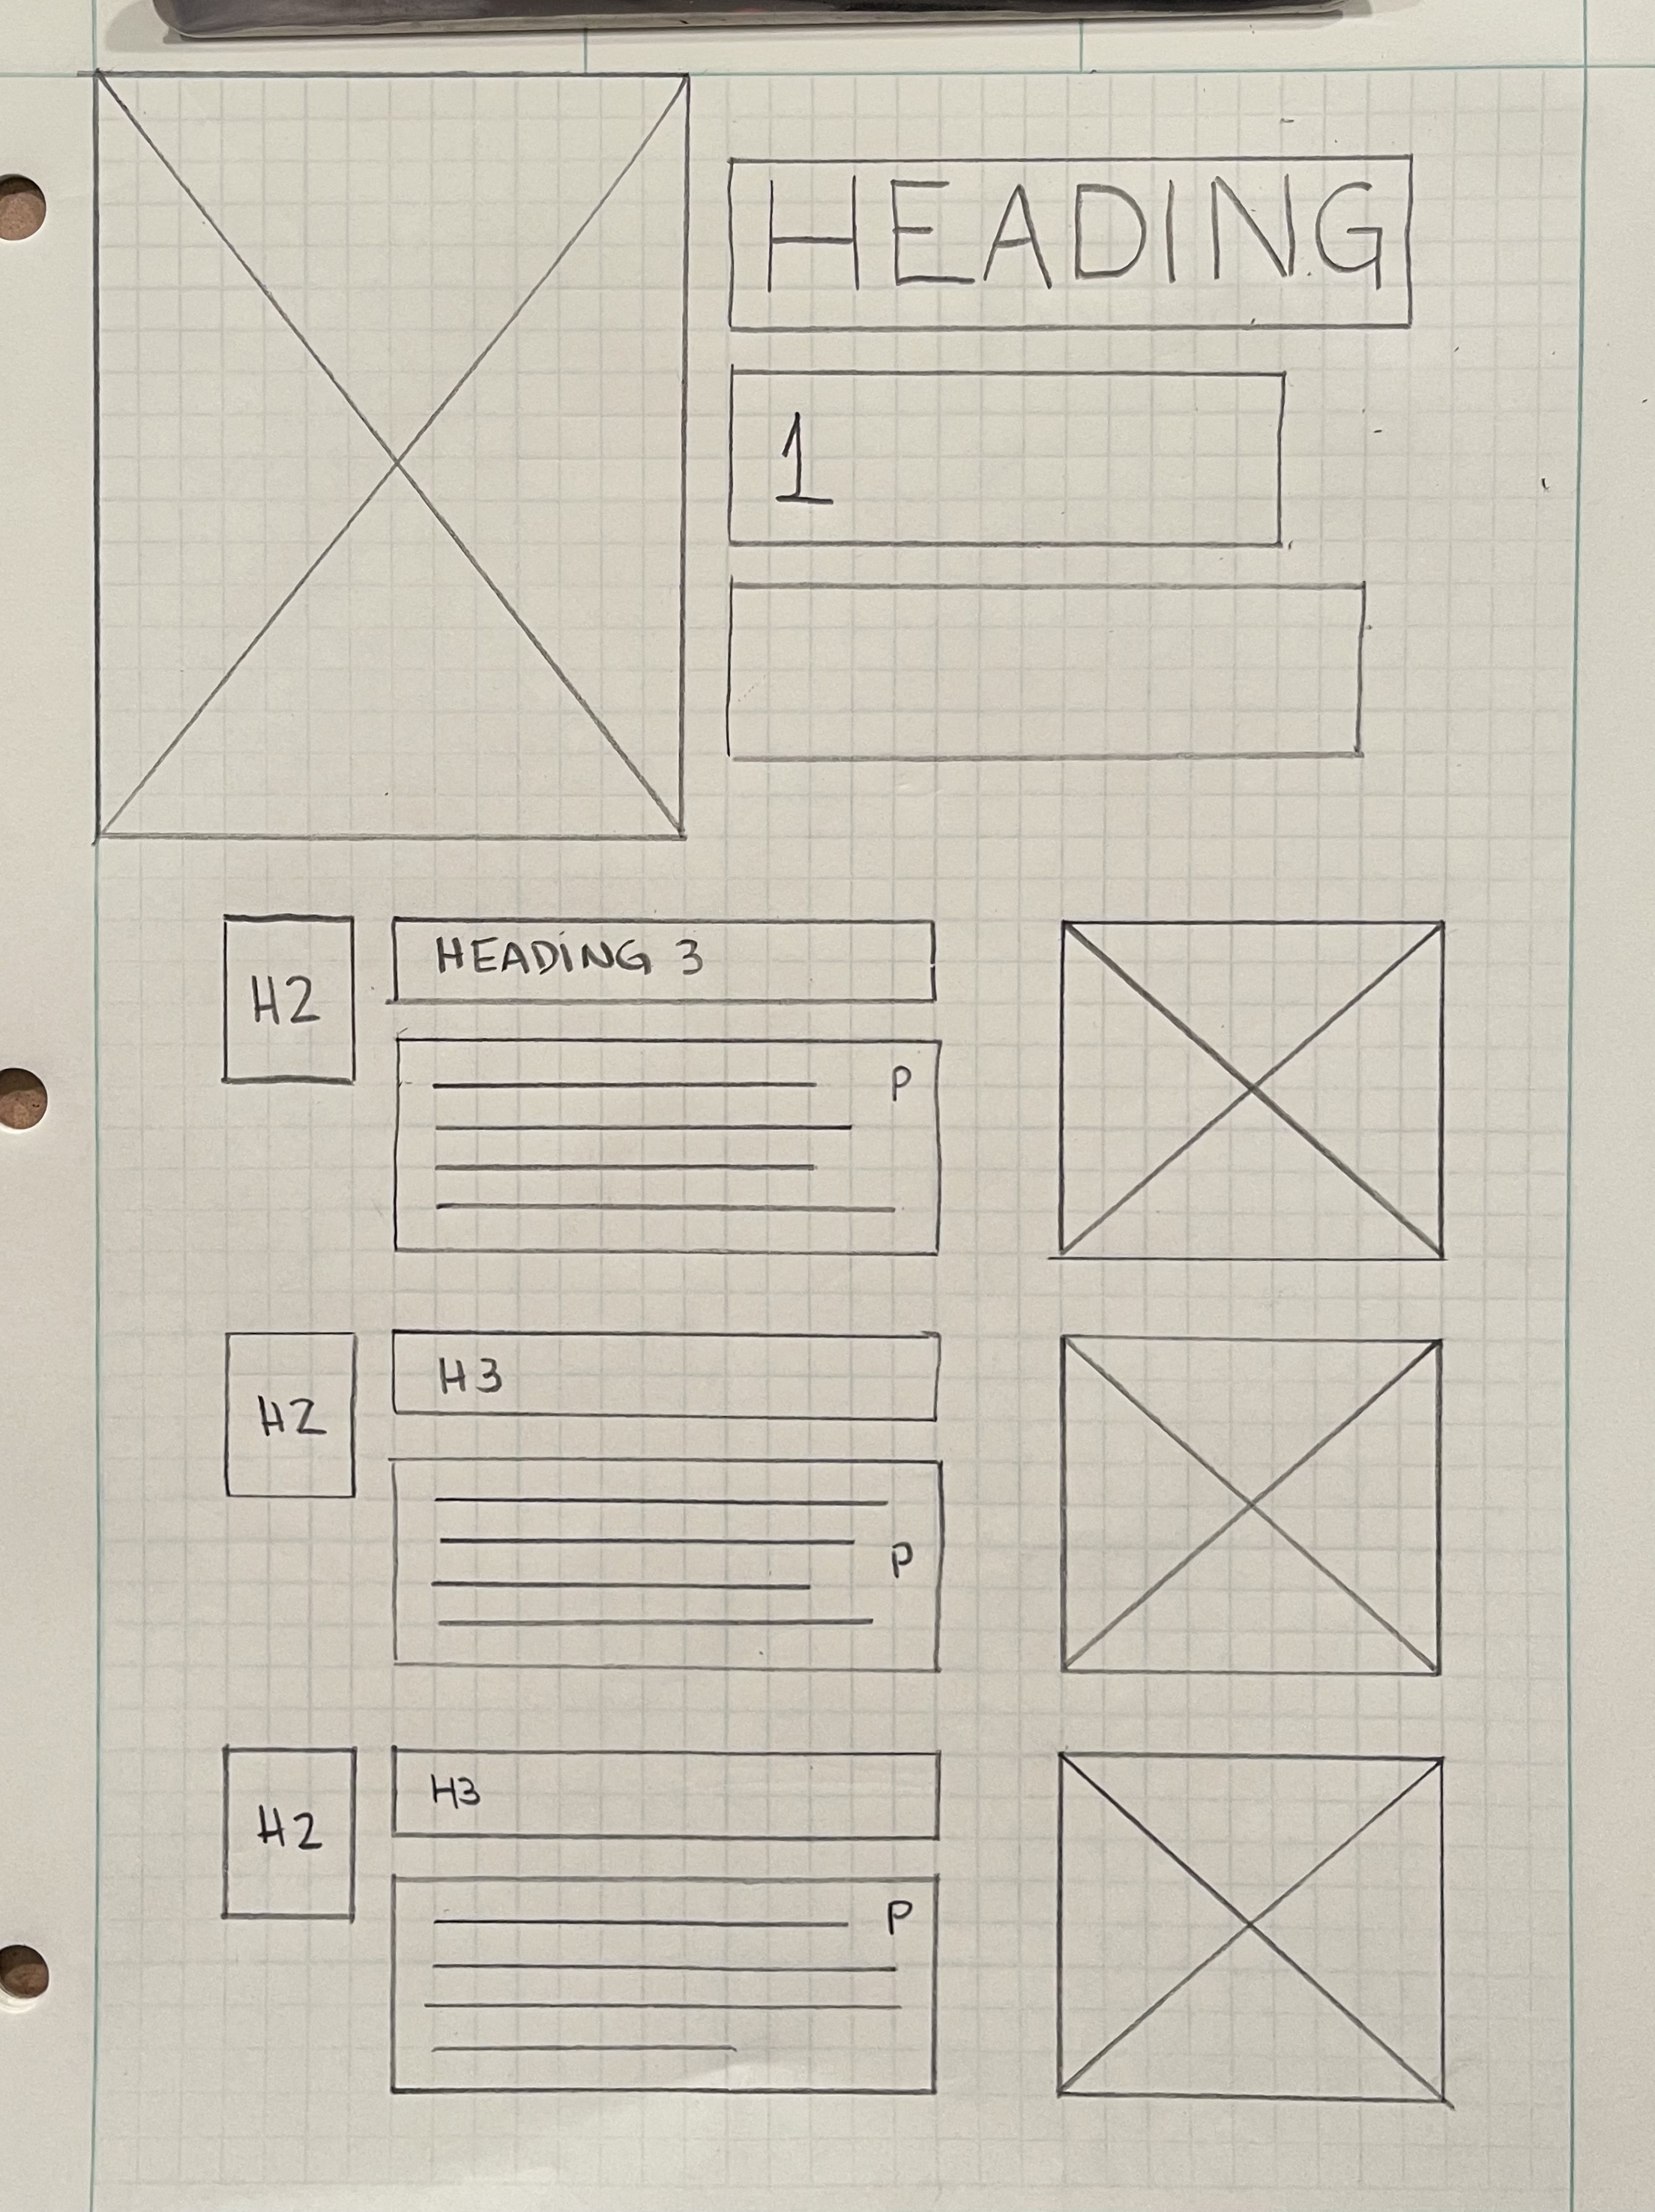 HEADING
1
H2
HEADING 3
P
H2
H3
P
H2
H3
P